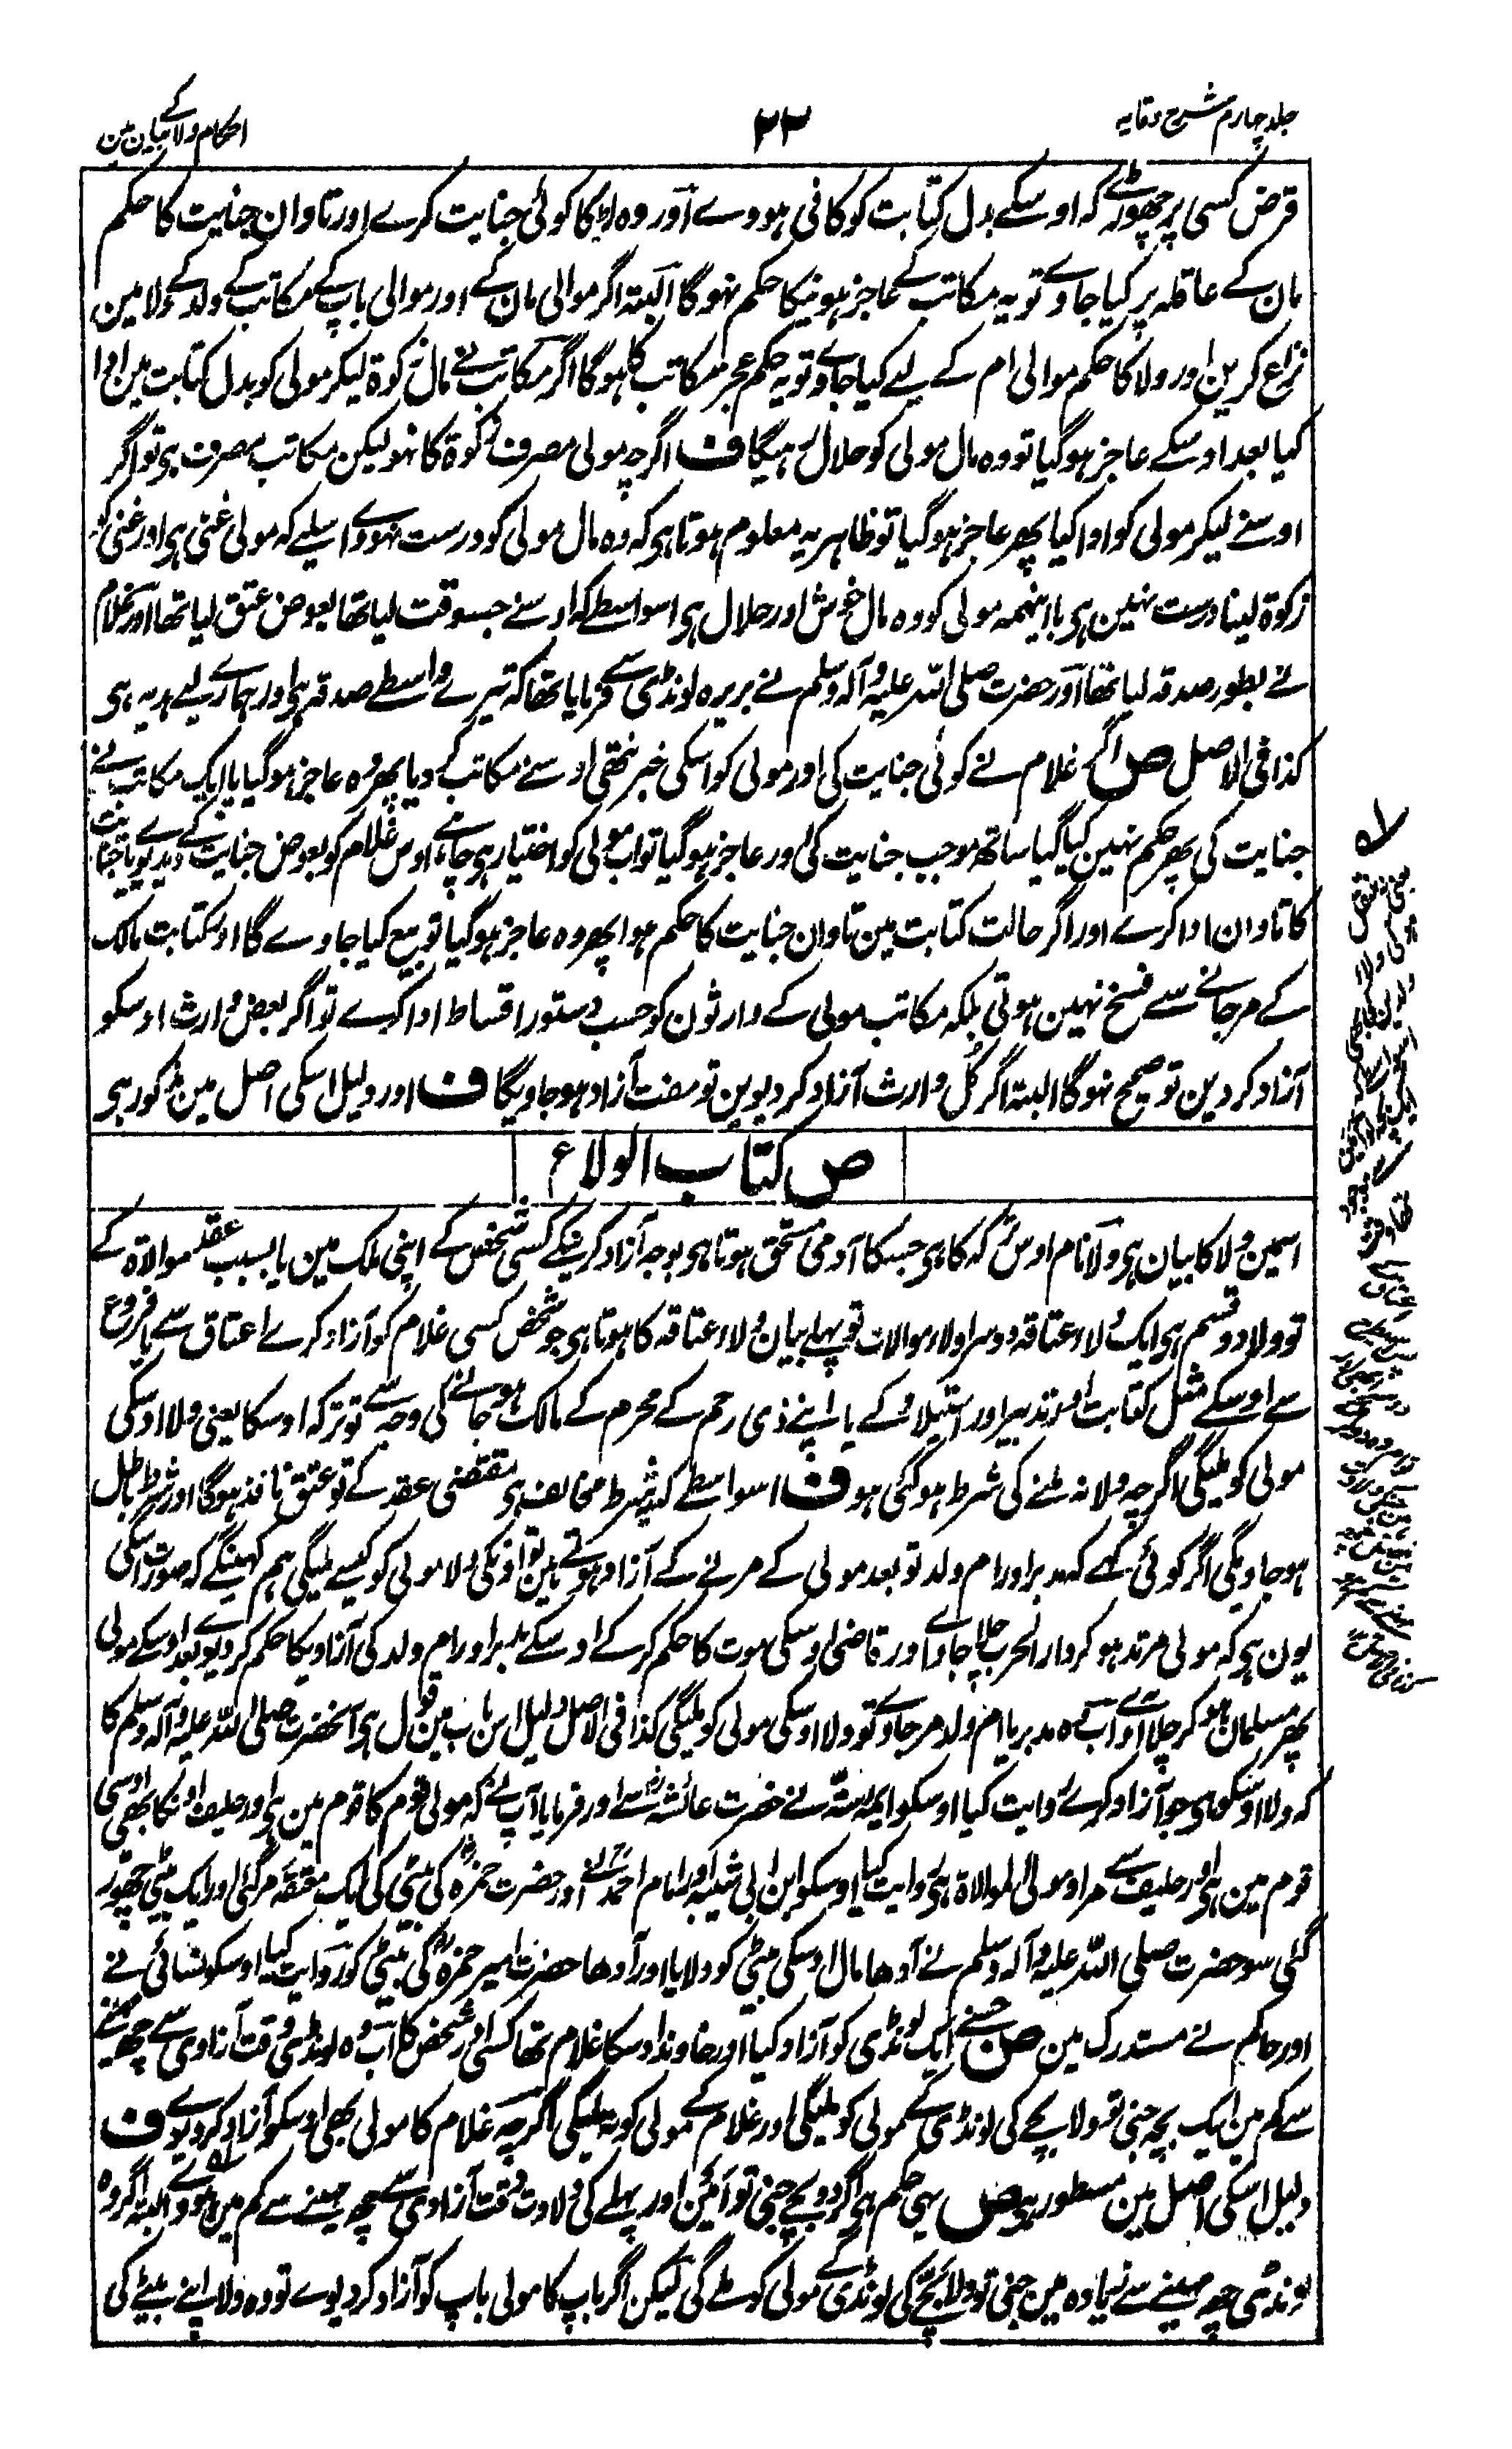 جلد چہارم شرح وقایہ
۲۳
احکام ولا کے بیان مین
قرض کسی پر چھوڑے کہ اوسکے بدل کتابت کو کافی ہووے اور وہ لڑکا کوئی جنایت کرے اور تاوان جنایت کا حکم
مان کے عاقلہ پر کیا جاوے تو یہ مکاتب کے عاجز ہونیکا حکم نہوگا البتہ اگر موالی مان کے اور موالی باپ کے مکاتب کے ولد کے ولا مین
نزاع کرین اور ولا کا حکم موالی ام کے لیے کیا جاوے تو یہ حکم عجز مکاتب کا ہوگا اگر مکاتب نے مال زکوۃ لیکر مولی کو بدل کتابت مین ادا
کیا بعد اوسکے عاجز ہوگیا تو وہ مال مولی کو حلال رہیگا ف اگرچہ مولی مصرف زکوۃ کا نہو لیکن مکاتب مصرف ہی تو اگر
اوسنے لیکر مولی کو ادا کیا پھر عاجز ہوگیا تو ظاہر یہ معلوم ہوتا ہی کہ وہ مال مولی کو درست نہووے اسلیے کہ مولی غنی ہی اور غنی کو
زکوۃ لینا درست نہین ہی بااینہمہ مولی کو وہ مال خوش اور حلال ہی اسواسطے کہ اوسنے جسوقت لیا تھا بعوض عتق لیا تھا اور غلام
نے بطور صدقہ لیا تھا اور حضرت صلی اللہ علیہ وآلہ وسلم نے بریرہ لونڈی سے فرمایا تھا کہ تیرے واسطے صدقہ ہی اور ہمارے لیے ہدیہ ہی
کذا فی الاصل ص اگر غلام نے کوئی جنایت کی اور مولی کو اسکی خبر نتھی اوسنے مکاتب کر دیا پھر وہ عاجز ہوگیا یا ایک مکاتب نے
جنایت کی پھر حکم نہین کیا گیا ساتھ موجب جنایت کی اور عاجز ہوگیا تو اب مولی کو اختیار ہی چاہے اوس غلام کو بعوض جنایت کے دیدیوے یا جنایت
کا تاوان ادا کرے اور اگر حالت کتابت مین تاوان جنایت کا حکم ہوا پھر وہ عاجز ہوگیا تو بیع کیا جاوے گا اور کتابت مالک
کے مرجانے سے فسخ نہین ہوتی بلکہ مکاتب مولی کے وارثون کو حسب دستور اقساط ادا کرے تو اگر بعض وارث اوسکو
آزاد کردین تو صحیح نہوگا البتہ اگر کل وارث آزاد کر دیوین تو مفت آزاد ہو جاویگا ف اور دلیل اسکی اصل مین مذکور ہی
ص کتاب الولاء
اسمین ولا کا بیان ہی ولا نام اوس ترکہ کا ہی جسکا آدمی مستحق ہوتا ہی بوجہ آزاد کرنیکے کسی شخص کے اپنی ملک مین یا بسبب عقد موالاۃ کے
تو ولا دو قسم ہی ایک ولاء عتاقہ دوسرا ولاء موالات تو پہلے بیان ولاء عتاقہ کا ہوتا ہی جو شخص کسی غلام کو آزاد کرے اعتاق سے یا فروع
سے اوسکے مثل کتابت اور تدبیر اور استیلاد کے یا اپنے ذی رحم کے محرم کے مالک ہو جانے کی وجہ سے تو ترکہ اوسکا یعنی ولا اوسکی
مولی کو ملیگی اگرچہ ولا نہ ملنے کی شرط ہوگئی ہو ف اسواسطے کہ یہ شرط مخالف ہی مقتضی عقد کے تو عتق نافذ ہوگا اور شرط باطل
ہو جاویگی اگر کوئی کہے کہ مدبر اور ام ولد تو بعد مولی کے مرنے کے آزاد ہوتے ہین تو اونکی ولا مولی کو کیسے ملیگی ہم کہینگے کہ صورت اسکی
یون ہی کہ مولی مرتد ہو کر دارالحرب چلا جاوے اور قاضی اوسکی موت کا حکم کرکے اوسکے مدبر اور ام ولد کی آزادی کا حکم کر دیوے بعد اوسکے مولی
پھر مسلمان ہو کر چلا آوے اب وہ مدبر یا ام ولد مرجاوے تو ولا اوسکی مولی کو ملیگی کذا فی الاصل دلیل اس باب مین قول ہی آنحضرت صلی اللہ علیہ وآلہ وسلم کا
کہ ولا اوسکو ہی جو آزاد کرے روایت کیا اوسکو ایمہ ستہ نے حضرت عائشہؓ سے اور فرمایا آپ نے کہ مولی قوم کا قوم مین ہی اور حلیف اونکا بھی اوسی
قوم مین ہی اور حلیف سے مراد مولی الموالاۃ ہی روایت کیا اوسکو ابن ابی شیبہ اور امام احمدؒ نے اور حضرت حمزہؓ کی بیٹی کی ایک معتقہ مرگئی اور ایک بیٹی چھوڑ
گئی سو حضرت صلی اللہ علیہ وآلہ وسلم نے آدھا مال اوسکی بیٹی کو دلایا اور آدھا حضرت امیر حمزہؓ کی بیٹی کو روایت کیا اوسکو نسائی نے
اور حاکم نے مستدرک مین ص جسنے ایک لونڈی کو آزاد کیا اور خاوند اوسکا غلام تھا کسی اور شخص کا اب وہ لونڈی وقت آزادی سے چھ مہینے
سے کم مین ایک بچہ جنی تو ولا بچے کی لونڈی کے مولی کو ملیگی اور غلام کے مولی کو نہ ملیگی اگرچہ غلام کا مولی بھی اوسکو آزاد کر دیوے ف
دلیل اسکی اصل مین مسطور ہی ص یہی حکم ہی اگر دو بچے جنی تو آمین اور پہلے کی ولادت وقت آزادی سے چھ مہینے سے کم مین ہووے البتہ اگر وہ
لونڈی چھ مہینے سے زیادہ مین جنی تو ولا بچے کی لونڈی کے مولی کو ملے گی لیکن اگر باپ کا مولی باپ کو آزاد کر دیوے تو وہ ولا اپنے بیٹے کی